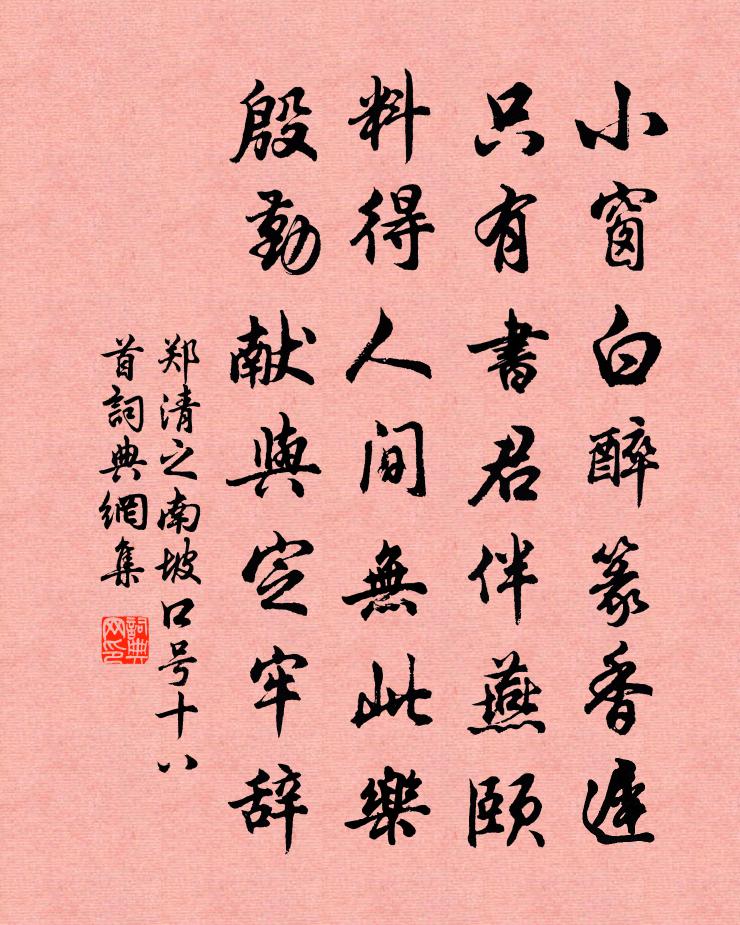 小窗白醉篆香遲
只有書君伴燕頤
料得人间無此樂
殷勤献與定牢辞
郑清之南坡口号十八
首詞典網集
詞典
网印